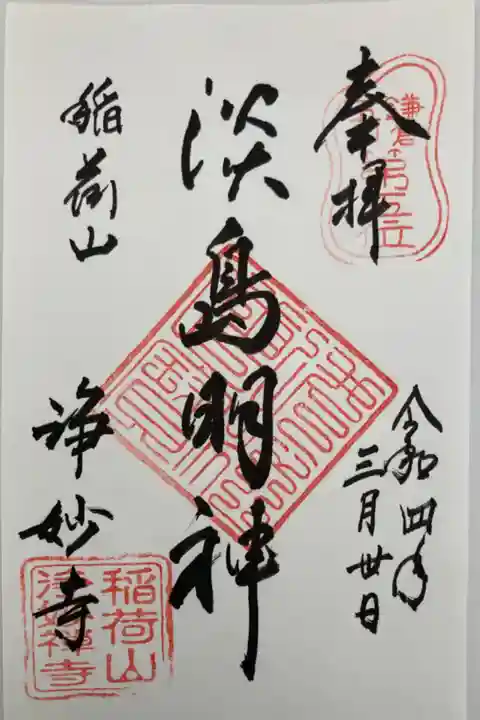 奉拝
鎌倉
第五位
令和四年
三月卅日
淡島明神
稲荷山
浄妙寺
稲荷山
浄妙禅寺